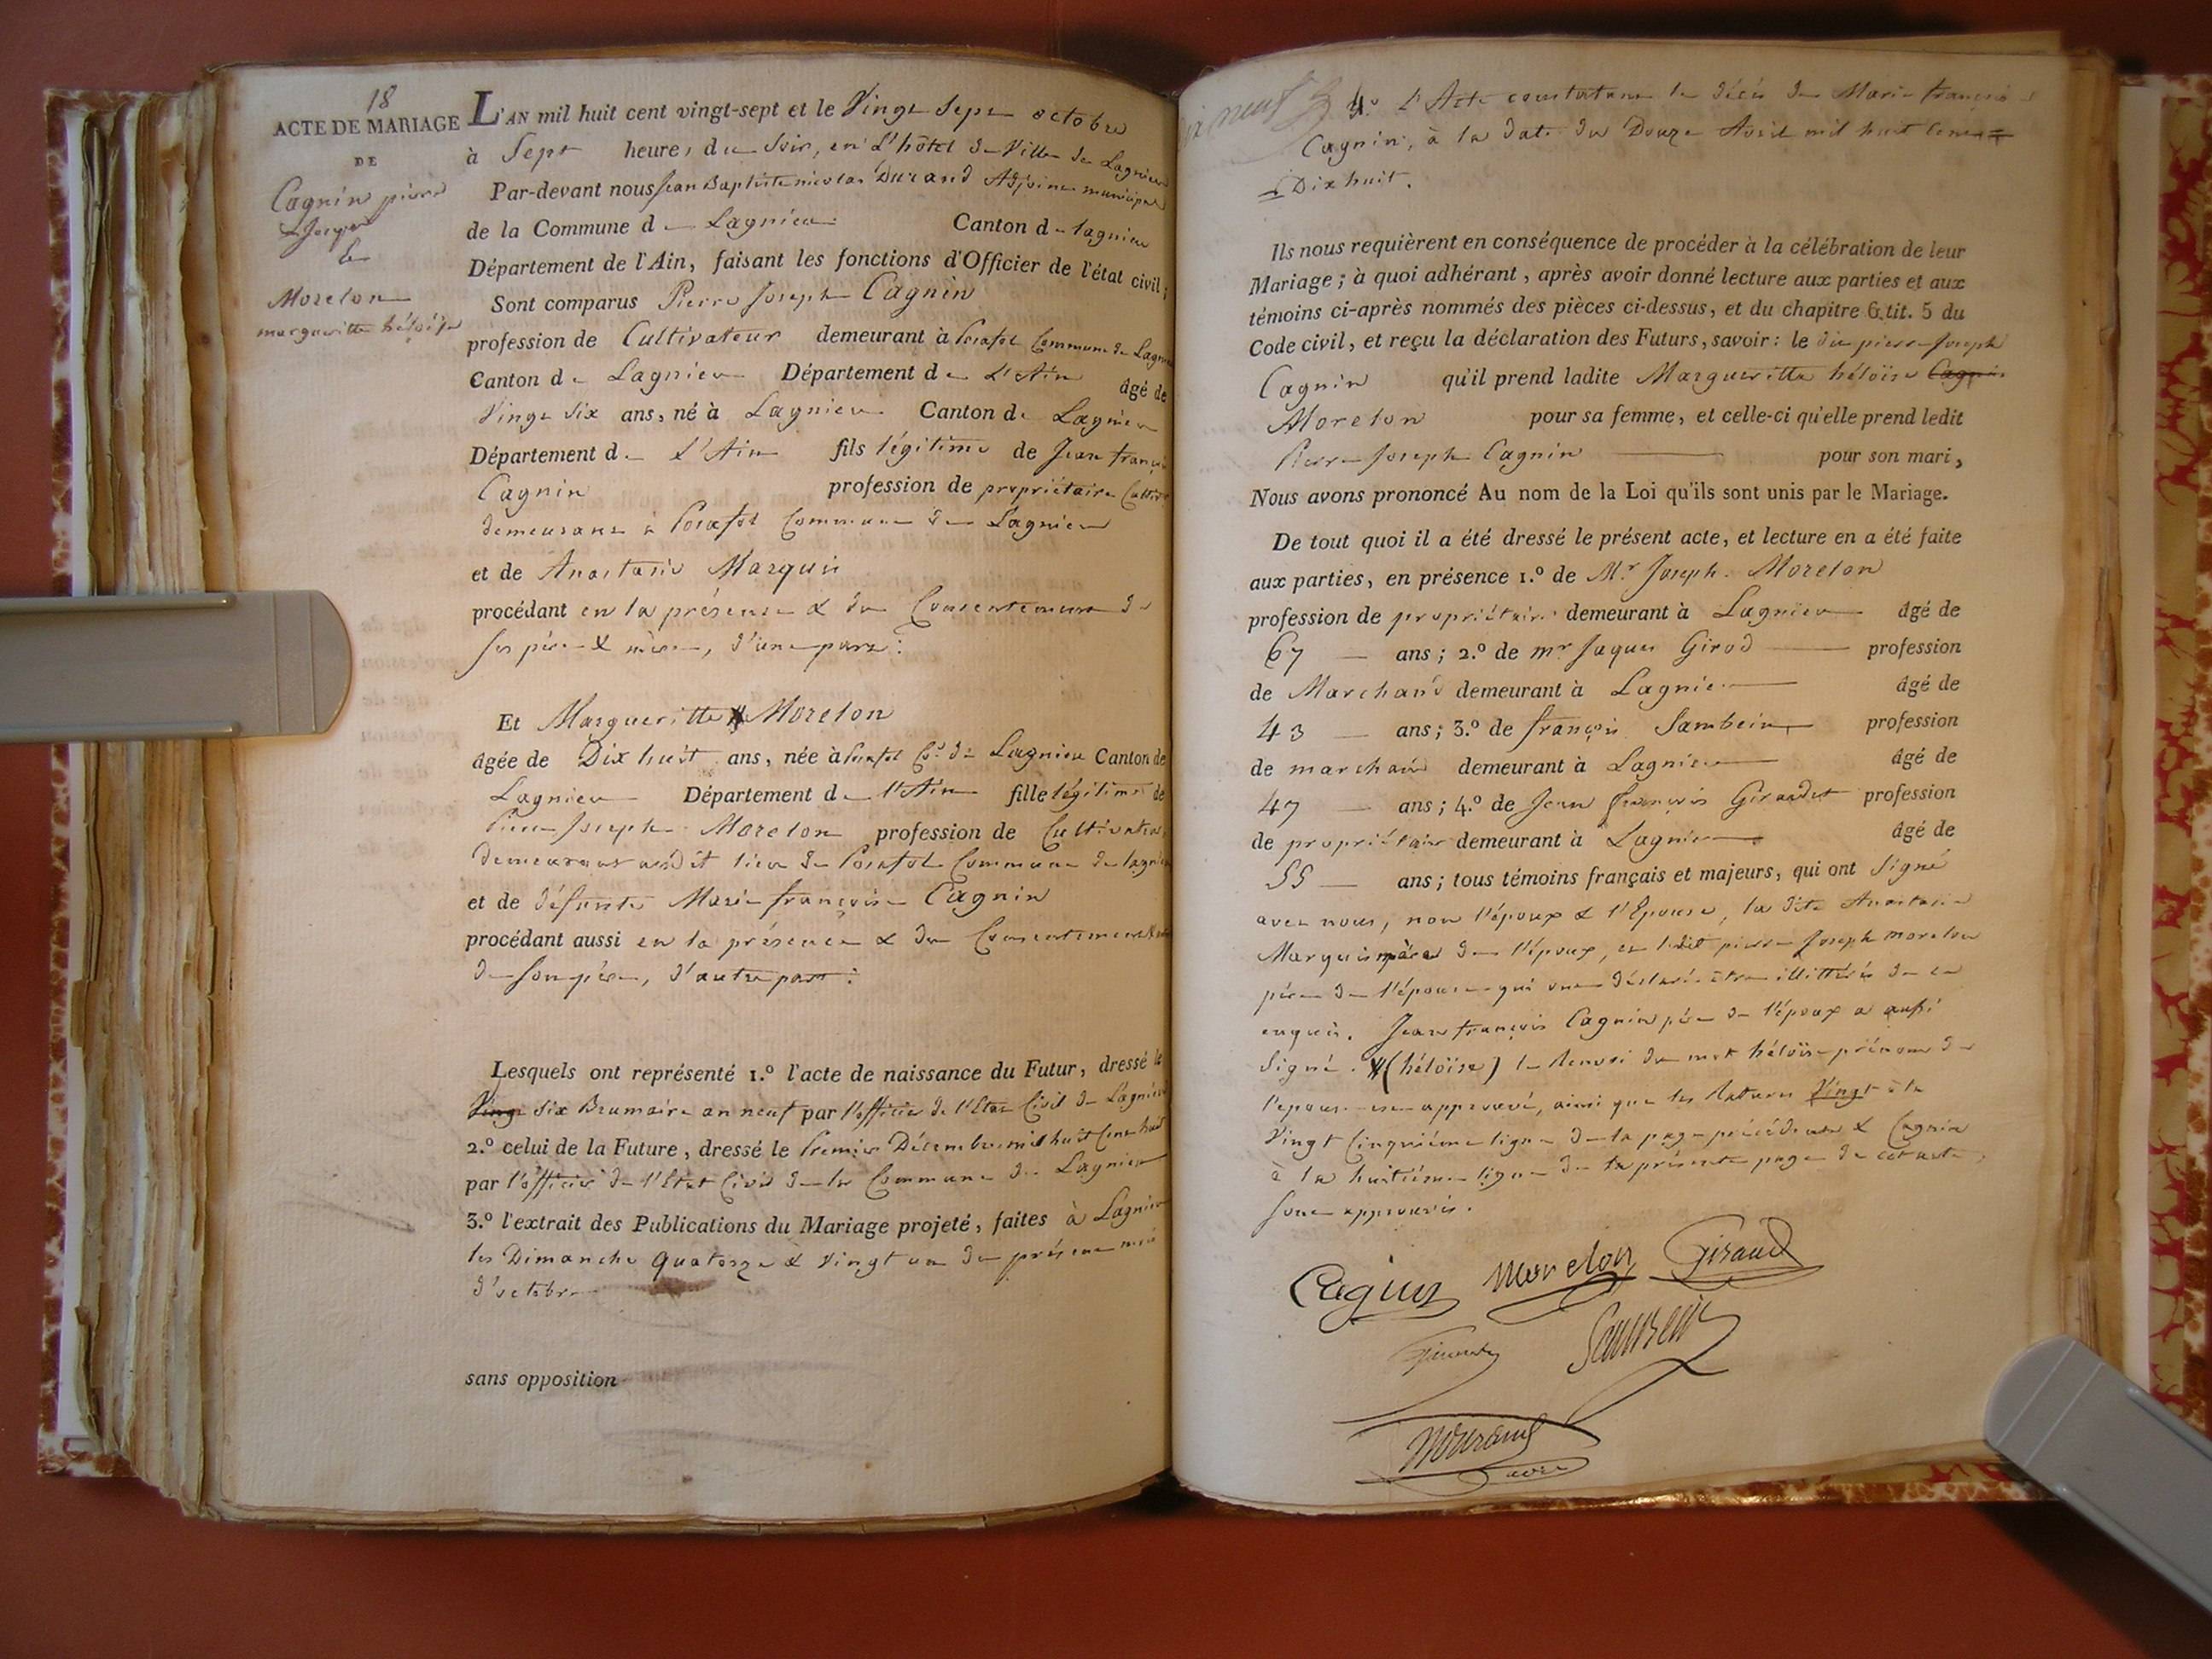 18
ACTE DE MARIAGE
DE
Cagnin pierre
Joseph
&
Morelon
margueritte héloïse
L'AN mil huit cent vingt-sept et le Vingt Sept octobre
à Sept heures du Soir, en L'hôtel de Ville de Lagnieu
Par-devant nous Jean Baptiste nicolas Durand Adjoint municipal
de la Commune de Lagnieu Canton de lagnieu
Département de l'Ain, faisant les fonctions d'Officier de l'état civil;
Sont comparus Pierre Joseph Cagnin
profession de Cultivateur demeurant à Posafol Commune de Lagnieu
Canton de Lagnieu Département de L'Ain âgé de
Vingt Six ans, né à Lagnieu Canton de Lagnieu
Département de L'Ain fils légitime de Jean françois
Cagnin profession de propriétaire Cultiv
demeurant à Posafol Commune de Lagnieu
et de Anastasie Marquis
procédant en la présence & du Consentement de
ses père & mère, d'une part:
Et Margueritte # Morelon
âgée de Dix huit ans, née à Posafol Cne de Lagnieu Canton de
Lagnieu Département de l'Ain fille légitime de
Pierre Joseph Morelon profession de Cultivateur
demeurant audit lieu de Posafol Commune de lagnieu
et de défunte Marie françoise Cagnin
procédant aussi en la présence & du Consentement
de son père, d'autre part:
Lesquels ont représenté 1.º l'acte de naissance du Futur, dressé le
Vingt Six Brumaire an neuf par l'officier de l'Etat Civil de Lagnieu
2.º celui de la Future, dressé le Premier Décembre mil huit Cent huit
par l'officier de l'Etat Civil de la Commune de Lagnieu
3.º l'extrait des Publications du Mariage projeté, faites à Lagnieu
les Dimanche quatorze & Vingt un du présent mois
d'octobre
sans opposition
neuf
4.º L'Acte constatant le décès de Marie françoise
Cagnin, à la date du Douze Avril mil huit Cent =
= Dix huit.
Ils nous requièrent en conséquence de procéder à la célébration de leur
Mariage; à quoi adhérant, après avoir donné lecture aux parties et aux
témoins ci-après nommés des pièces ci-dessus, et du chapitre 6. tit. 5 du
Code civil, et reçu la déclaration des Futurs, savoir: le dit pierre Joseph
Cagnin qu'il prend ladite Margueritte héloïse Cagnin
Morelon pour sa femme, et celle-ci qu'elle prend ledit
Pierre Joseph Cagnin pour son mari,
Nous avons prononcé Au nom de la Loi qu'ils sont unis par le Mariage.
De tout quoi il a été dressé le présent acte, et lecture en a été faite
aux parties, en présence 1.º de Mr Joseph Morelon
profession de propriétaire demeurant à Lagnieu âgé de
67 ans; 2.º de mr Jaques Girod profession
de Marchand demeurant à Lagnieu âgé de
43 ans; 3.º de françois Sambein profession
de marchand demeurant à Lagnieu âgé de
47 ans; 4.º de Jean françois Giraudet profession
de propriétaire demeurant à Lagnieu âgé de
55 ans; tous témoins français et majeurs, qui ont Signé
avec nous, non l'époux & l'Epouse, la dite Anastasie
Marquis mère de l'époux, et ledit pierre Joseph morelon
père de l'épouse qui ont déclaré être illittérés de ce
enquis. Jean françois Cagnin père de l'époux a aussi
Signé. #(héloïse) le Renvoi du mot héloïse prénom de
l'épouse est approuvé, ainsi que les Ratures Vingt à la
Vingt Cinquième ligne de la page précédente & Cagnin
à la huitième ligne de la présente page de cet acte
sont approuvés.
Cagnin Morelon Giraud
Sambein
NDurand